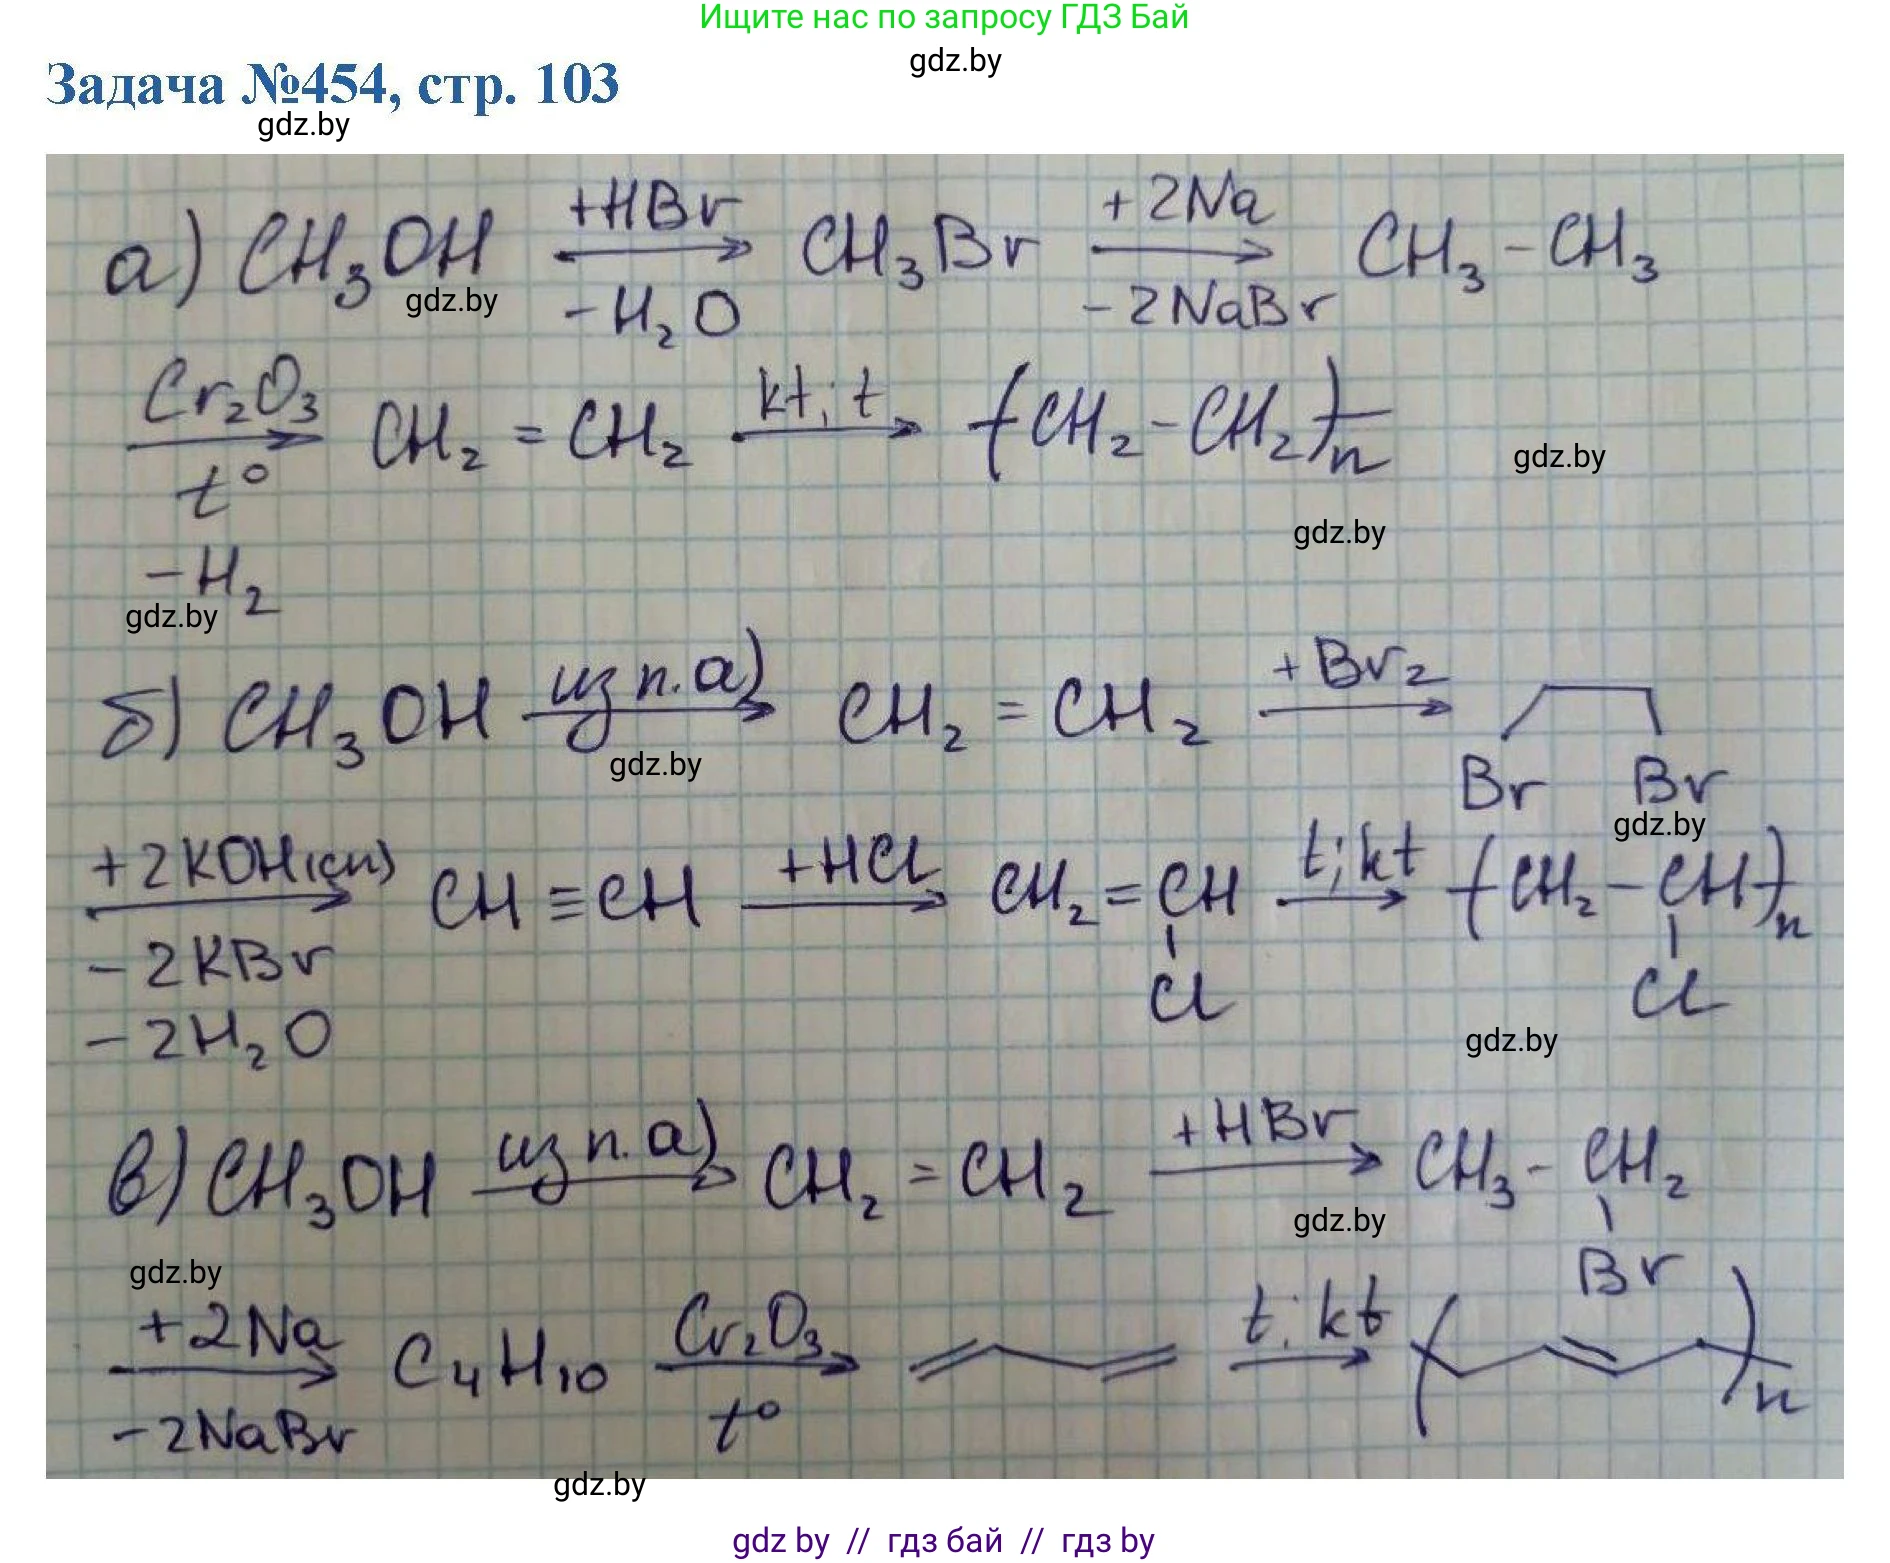 Ищите нас по запросу ГДЗ Бай
gdz.by
Задача №454, стр. 103
gdz.by
а) CH₃OH +HBr → −H₂O CH₃Br +2Na → −2NaBr CH₃−CH₃
gdz.by
Cr₂O₃ → t° −H₂ CH₂=CH₂ kt; t → (CH₂−CH₂)n
gdz.by
gdz.by
gdz.by
б) CH₃OH из п. а) → CH₂=CH₂ +Br₂ → Br Br
gdz.by
gdz.by
+2KOH(сп) → −2KBr −2H₂O CH≡CH +HCl → CH₂=CH Cl t; kt → (CH₂−CH)n Cl
gdz.by
в) CH₃OH из п. а) → CH₂=CH₂ +HBr → CH₃−CH₂ Br
gdz.by
gdz.by
+2Na → −2NaBr C₄H₁₀ Cr₂O₃ → t° t; kt → ( )n
gdz.by
gdz by // гдз бай // гдз by